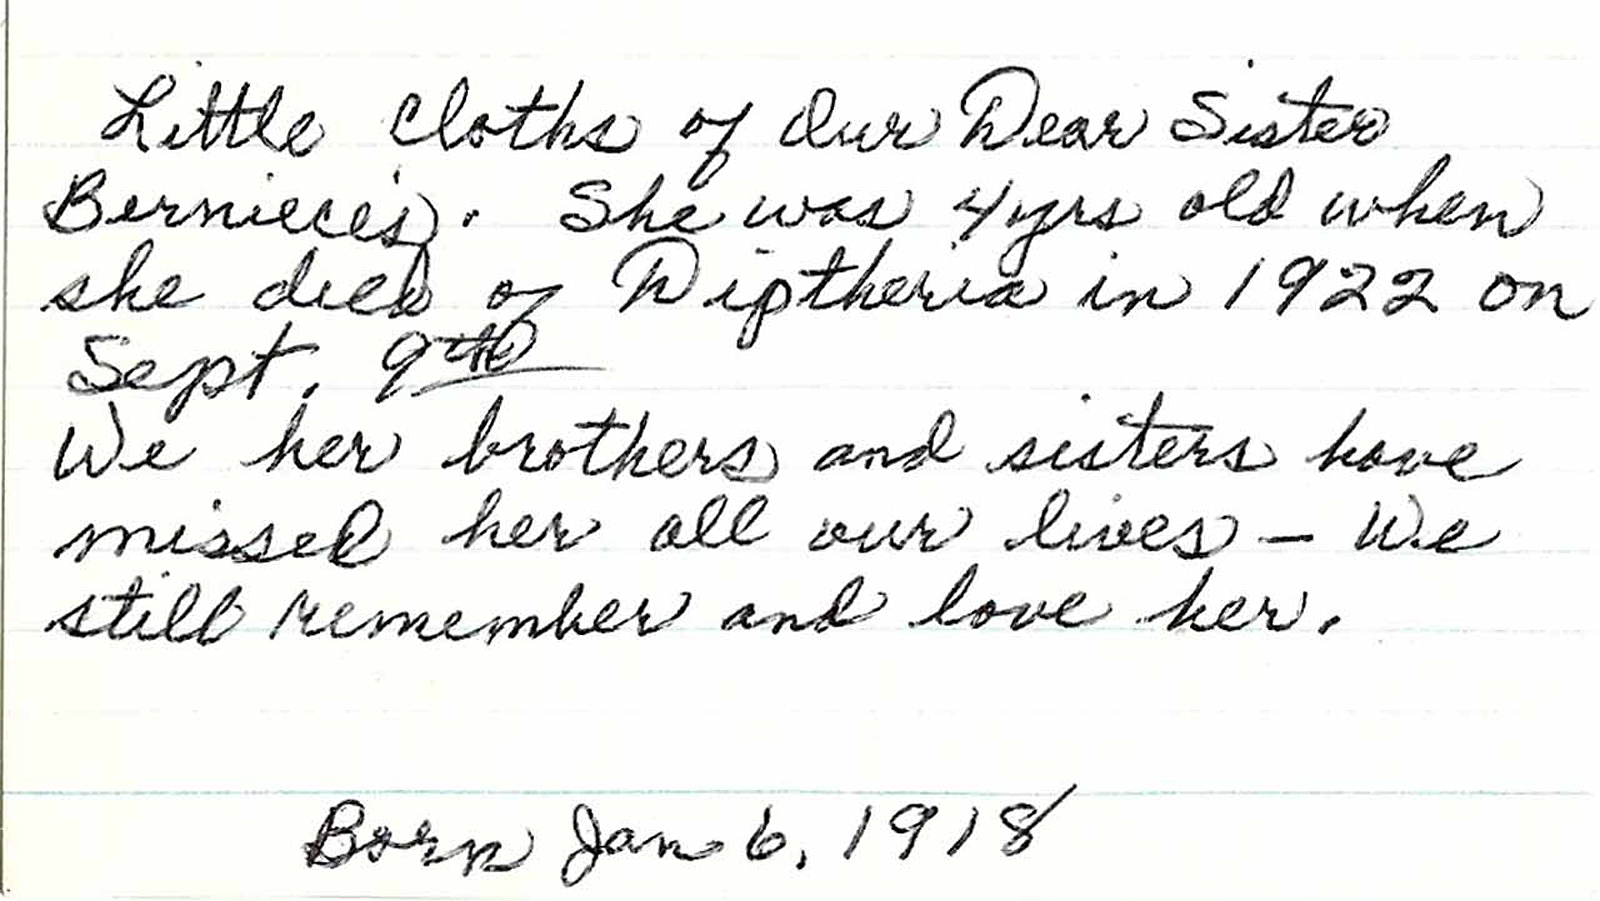 Little Cloths of Our Dear Sister
Berniece's. She was 4yrs old when
she died of Diptheria in 1922 on
Sept. 9th
We her brothers and sisters have
missed her all our lives – We
still remember and love her.
Born Jan 6, 1918